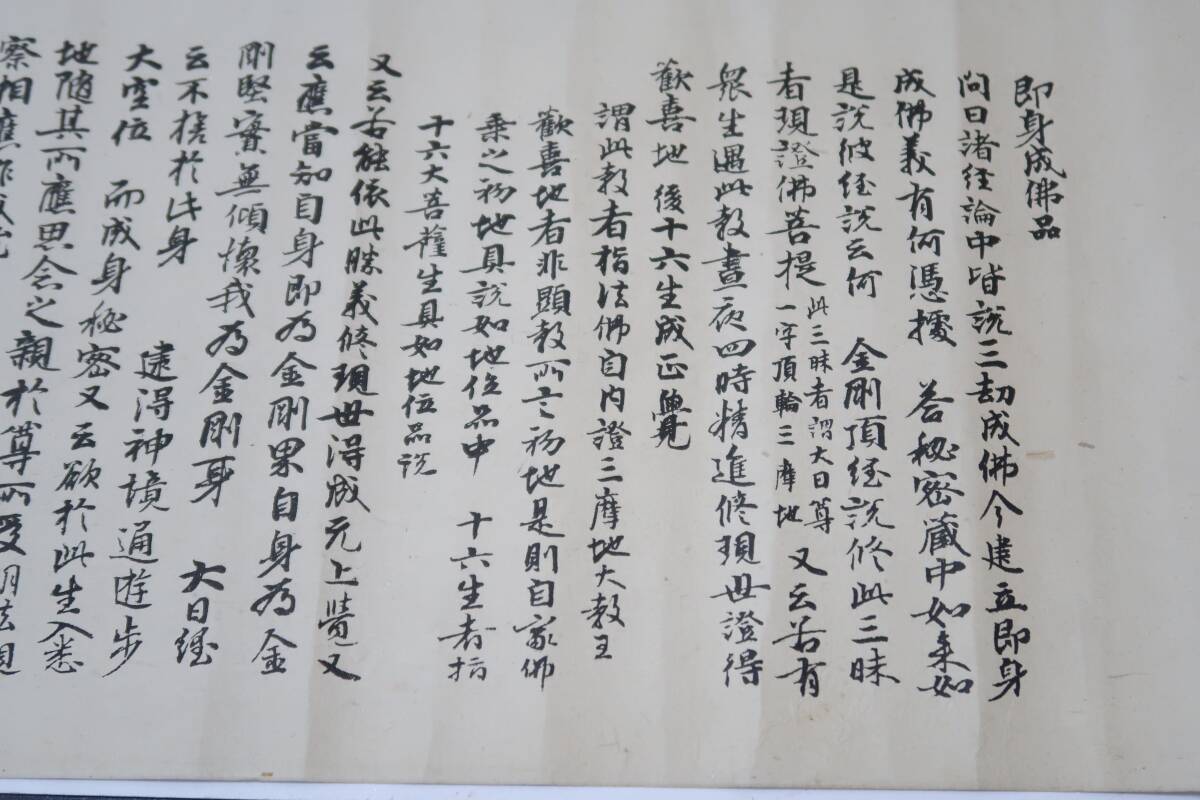 即身成佛品
問曰諸経論中皆説三劫成佛今建立即身
成佛義有何憑據　荅秘密蔵中如来如
是説彼経説云何　金剛頂経説修此三昧
者現證佛菩提 此三昧者謂大日尊一字頂輪三摩地 又云若有
衆生遇此教晝夜四時精進修現世證得
歡喜地後十六生成正覺
謂此教者指法佛自内證三摩地大教王
歡喜地者非顕教所言初地是則自家佛
乗之初地具説如地位品中　十六生者指
十六大菩薩生具如地位品説
又云若能依此勝義修現世得成无上覺又
云應當知自身即為金剛界自身為金
剛堅實無傾懐我為金剛身　大日経
云不捨於此身　逮得神境通遊歩
大空位　而成身秘密又云欲於此生入悉
地随其所應思念之親於尊所受明法觀
察相應作成就